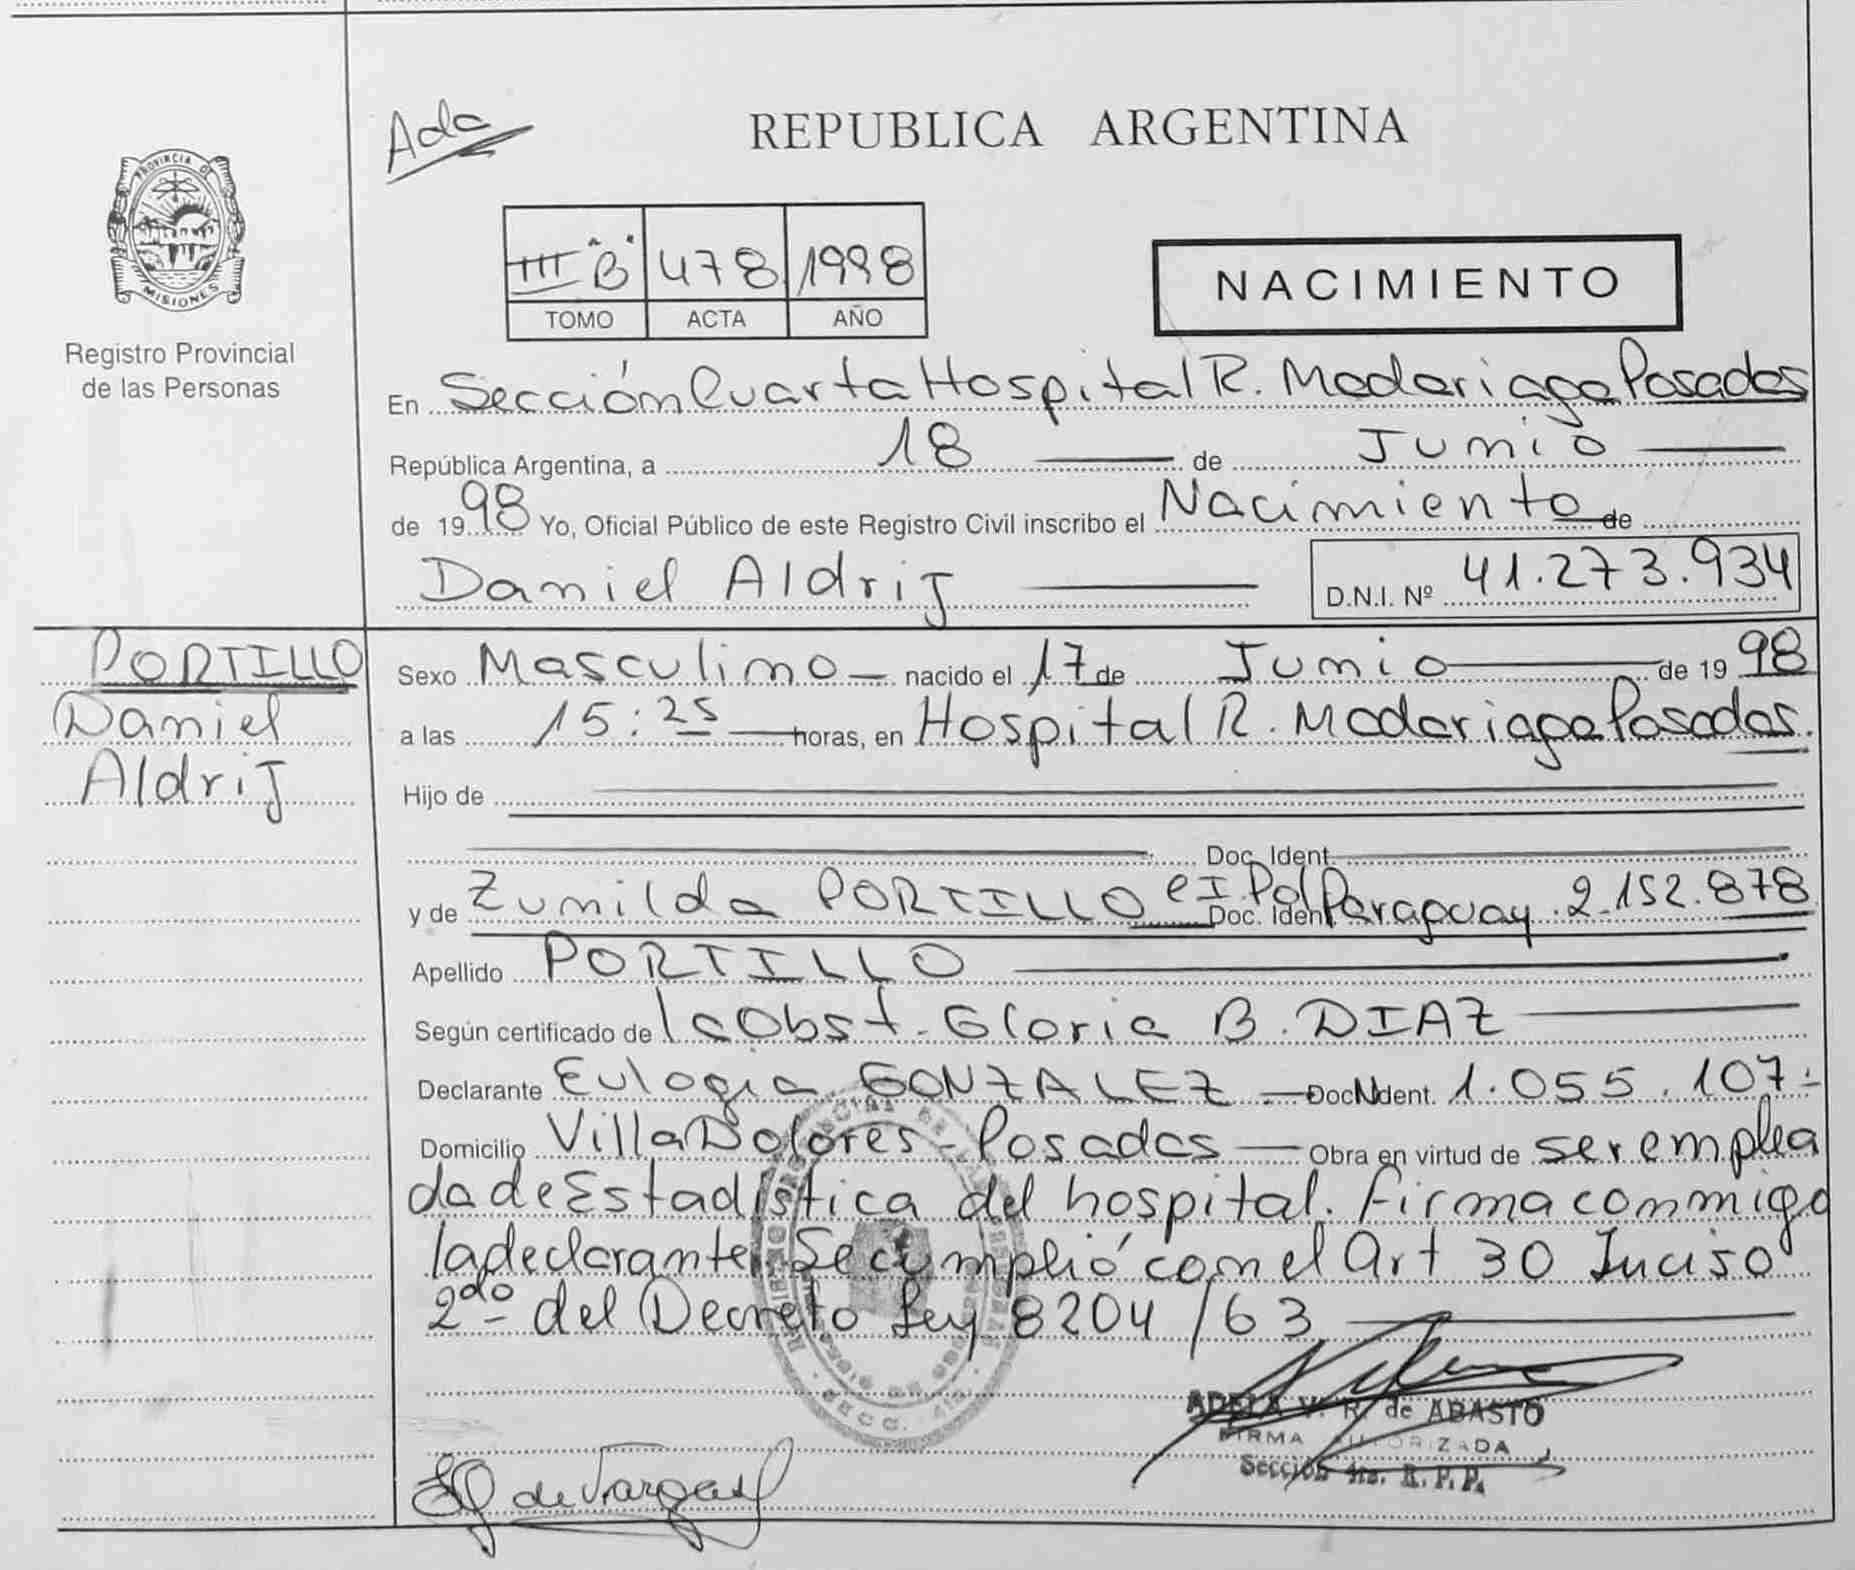 Ada
REPUBLICA ARGENTINA
PROVINCIA DE
MISIONES
Registro Provincial
de las Personas
III B 478 1998
TOMO ACTA AÑO
NACIMIENTO
En Sección Cuarta Hospital R. Madariaga Posadas
República Argentina, a 18 de Junio
de 1998 Yo, Oficial Público de este Registro Civil inscribo el Nacimiento de
Daniel Aldrij D.N.I. Nº 41.273.934
PORTILLO
Daniel
Aldrij
Sexo Masculino nacido el 17 de Junio de 1998
a las 15:25 horas, en Hospital R. Madariaga Posadas.
Hijo de
Doc. Ident.
y de Zunilda PORTILLO CI Pol Doc. Ident Paraguay 2.152.878
Apellido PORTILLO
Según certificado de la Obst. Gloria B. DIAZ
Declarante Eulogia GONZALEZ Doc. Ident. N 1.055.107.-
Domicilio Villa Dolores - Posadas Obra en virtud de ser emplea
da de Estadística del hospital. Firma conmigo
la declarante. Se cumplió con el Art 30 Inciso
2do del Decreto Ley 8204/63
ADELA V. R. de ABASTO
FIRMA AUTORIZADA
Sección 4ta. R. P. P.
EG de Vargas